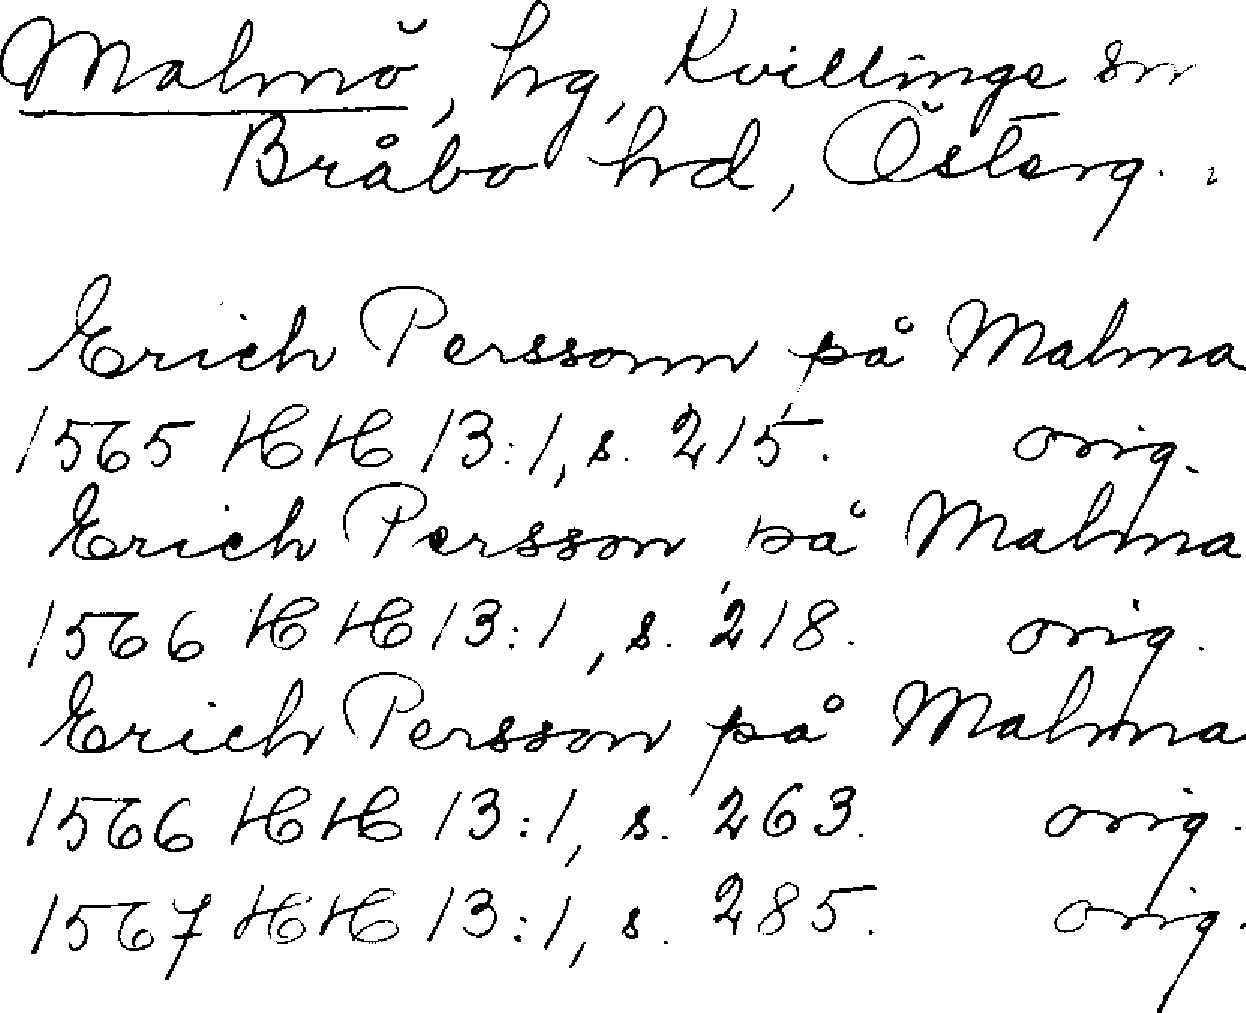 Malmö, hg, Kvillinge sn
Bråbo hd, Österg.
Erich Perssonn på Malma
1565 HH 13:1, s. 215. orig.
Erich Persson på Malma
1566 HH 13:1, s. 218. orig.
Erich Persson på Malma
1566 HH 13:1, s. 263. orig.
1567 HH 13:1, s. 285. orig.